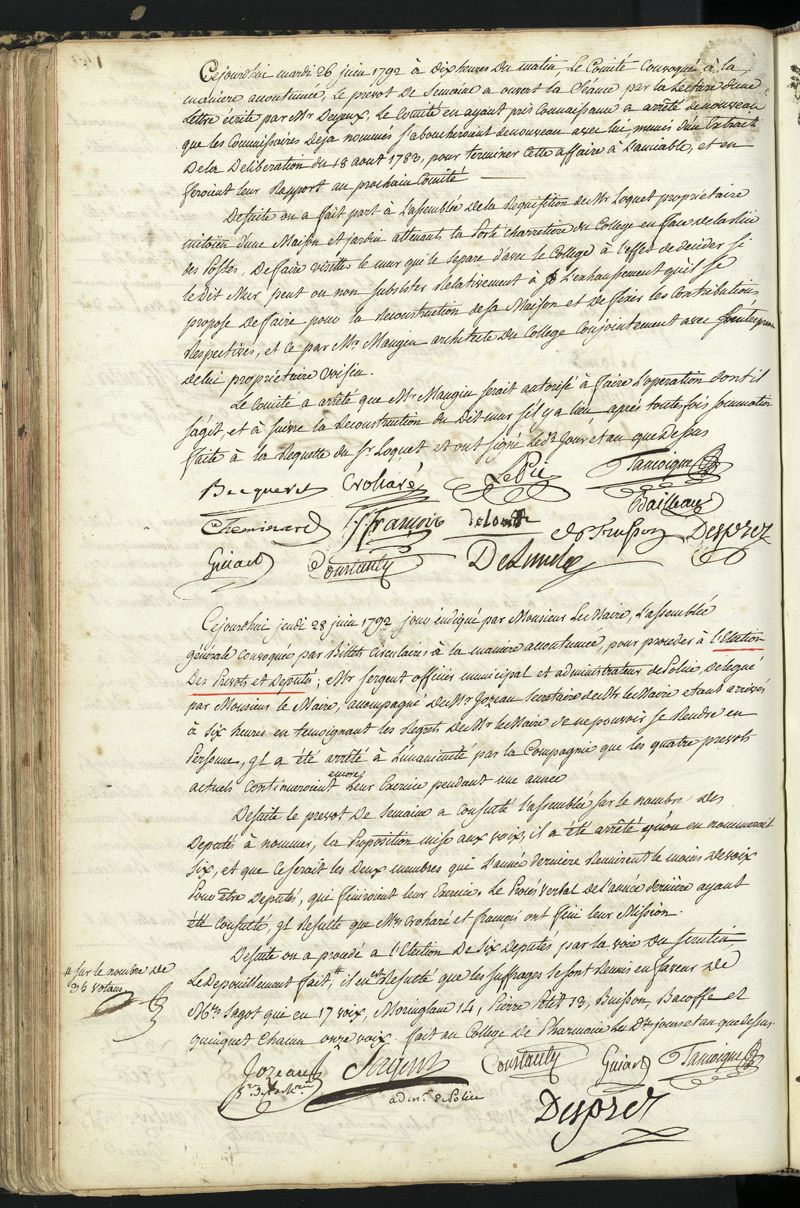 Cejourdhui mardi 26 juin 1792 à Dix heures du matin, Le Comité Convoqué à la
maniere acoutumée, Le prevot De Semaine a ouvert la Séance par la Lecture d'une
Lettre écrite par Mr Deyeux, Le Comité en ayant pris Connaissance a arrêté de nouveau
que les Commissaires Deja nommés S'aboucheroient denouveau avec lui munis d'un Extrait
De la Deliberation du 18 aout 1783, pour terminer Cette affaire à L'amiable, et en
feroient leur Raport au prochain Comité
Desuite on a fait part à L'assemblée de la Requisition de Mr Loquet propriétaire
mitoïen d'une Maison et jardin attenants la Porte Charretiere du College en face de la Rue
des Postes, De faire visitte le mur qui le Separe d'avec le College à l'effet de decider si
le dit Mur peut ou non subsister Relativement à L'exhaussement qu'il se
propose De faire pour la reconstruction de sa Maison et De fixer les Contributions
Respectives, et ce par Mr Maugin architecte Du College Conjointement avec
de lui propriétaire voisin.
Le Comité a arrêté que Mr Maugin serait autorisé à faire L'operation dont il
s'agit, et à suivre la Reconstruction du Dit mur s'il y a lieu après toutefois sommation
faite à la Requette du Sr Loquet et ont signé Led. Jour et an que Dessus
Becqueret Croharé LePic Tassoigne
Bailleau
Cheminard f. françois delondre Desprez
Guiard Coustanty DeLunel
Cejourdhui jeudi 28 juin 1792 jour indiqué par Monsieur Le Maire, L'assemblée
générale Convoquée par Billets Circulaires à la maniere acoutumée, pour proceder à l'Election
Des Prevots et Deputés; Mr Sergent officier municipal et administrateur de Police Delegué
par Monsieur le Maire, accompagné de Mr Jozeau Secretaire de Mr le Maire etant arrivés
à six heures en temoignant les Regrets De Mr le Maire de ne pouvoir se Rendre en
Personne, Il a été arrêté à L'unanimité par la Compagnie que les quatre prevots
actuels Continueroient encore Leur Exercice pendant une année
Desuite le prevot De Semaine a Consulté l'assemblée sur le nombre Des
Deputés à nommer, la Proposition mise aux voix, il a été arrêté qu'on en nommerait
six, et que Ce serait les Deux membres qui L'année Derniere Reunirent le moins De voix
Pour être Deputés, qui finiroient leur Exercice. Le Procès verbal de l'année derniere ayant
été Consulté, Il Resulte que Mrs Croharé et françois ont fini leur Mission.
Desuite on a procedé a l'Election De Six Deputés par la voie Du Scrutin
Le Depouillement fait, # il en est Resulté que les suffrages se sont Reunis en faveur de
# sur le nombre de
35 votans
Mrs Sagot qui eu 17 voix, Moringlane 14, Pierre Petit 13, Buisson, Bacoffe et
quinquet Chacun onze voix. fait au College de Pharmacie Les Dits jours et an que dessus
Jozeau Sergent Coustanty Guiard Tassoigne
adm. de Police
Desprez